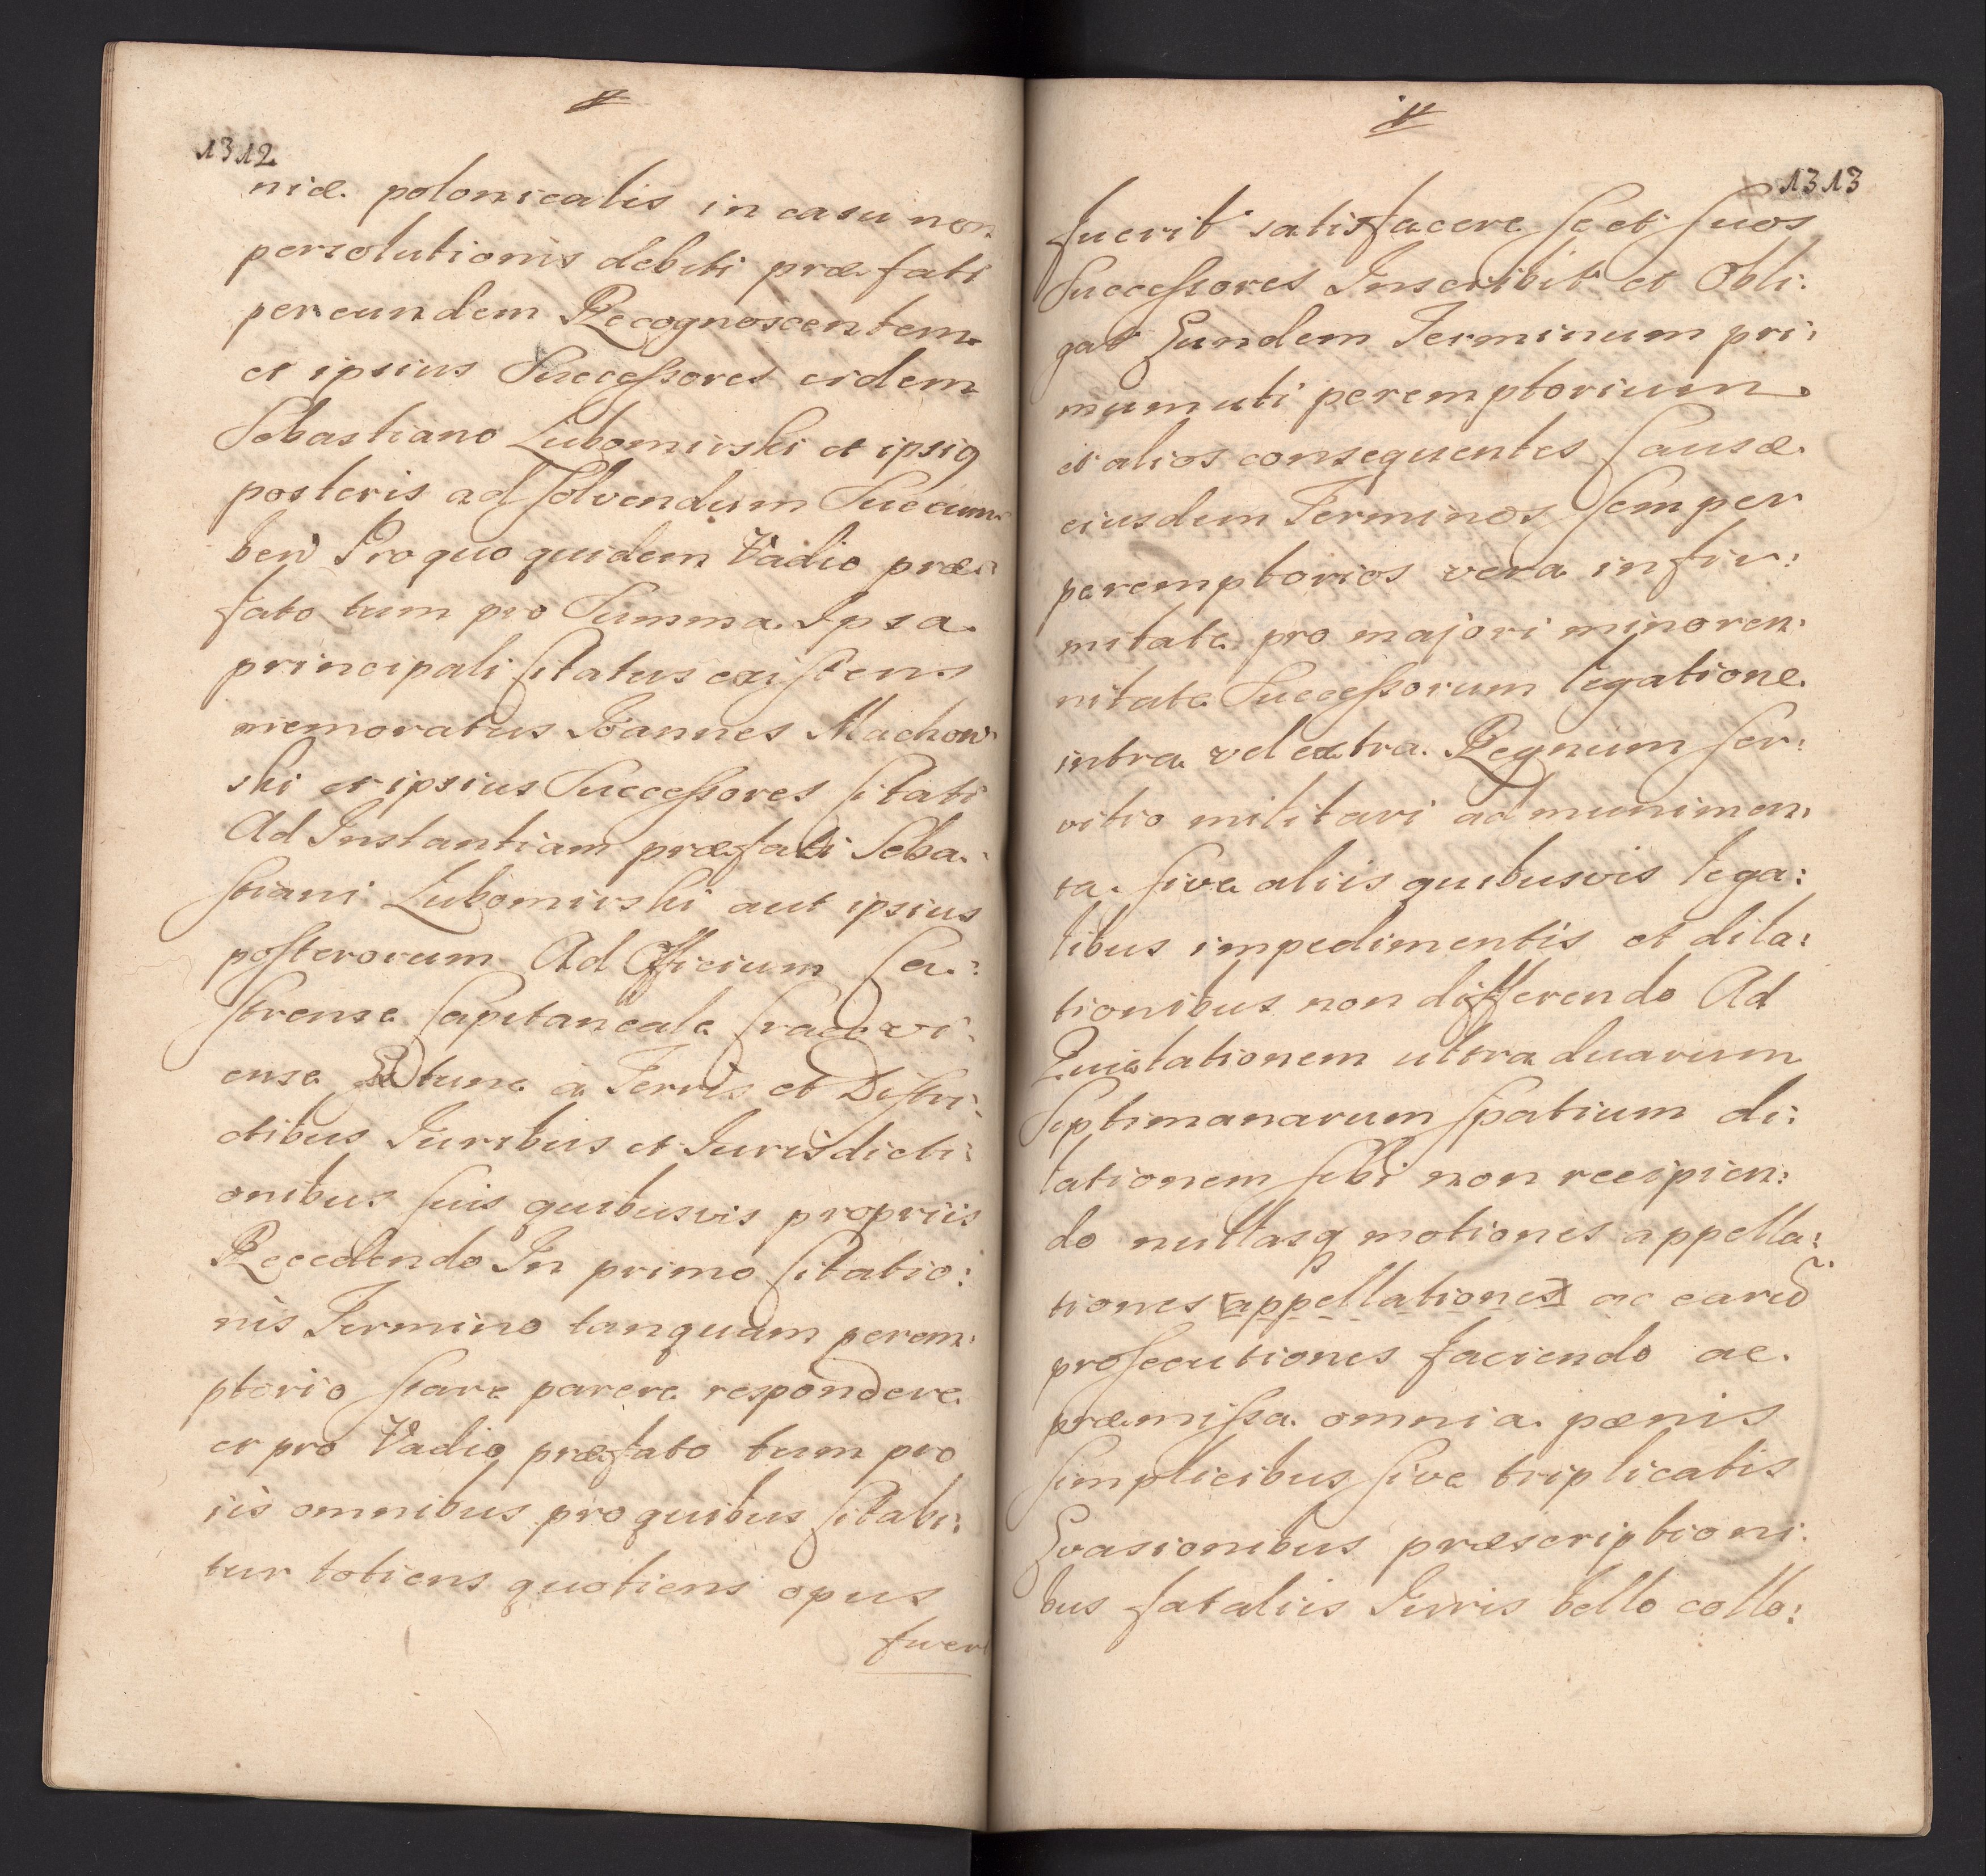 1312
niæ polonicalis in casu non
persolutionis debiti præfati
per eundem Recognoscentem
et ipsius Successores eidem
Sebastiano Lubomirski et ipsiq
posteris ad solvendum Succum
ben Pro quo quidem Vadio præ:
fato tum pro Summa Ipsa
principali Citatus existens
memoratus Joannes Machow
ski et ipsius Successores Citati
Ad Instantiam præfati Seba:
stiani Lubomirski aut ipsius
posterorum Ad Officium Ca:
strense Capitaneale Cracovi:
ense Ex tunc à Terris et Distri:
ctibus Juribus et Jurisdicti:
onibus suis quibusvis propriis
Recedendo In primo Citatio:
nis Termino tanquam perem:
ptorio stare parere respondere
et pro Vadio præfato tum pro
iis omnibus pro quibus Citabi:
tur totiens quotiens opus
fuer
1313
fuerit satisfacere se et suos
Successores Inscribit et Obli:
gat Eundem Terminum pri:
mum uti peremptorium
et alios consequentes Causæ
eiusdem Terminos semper
peremptorios vera infir:
mitate pro majori minoren:
nitate Successorum legatione
intra vel extra Regnum ser:
vitio militari ad munimen:
ta sive aliis quibusvis lega:
libus impedimentis et dila:
tionibus non differendo Ad
Quietationem ultra duarum
Septimanarum spatium di:
lationem sibi non recipien:
do nullasq motiones appella:
tiones [appellationes] ac eard
prosecutiones faciendo ac
præmissa omnia pænis
simplicibus sive triplicatis
Evasionibus præscriptioni:
bus fataliis Juris bello collo: